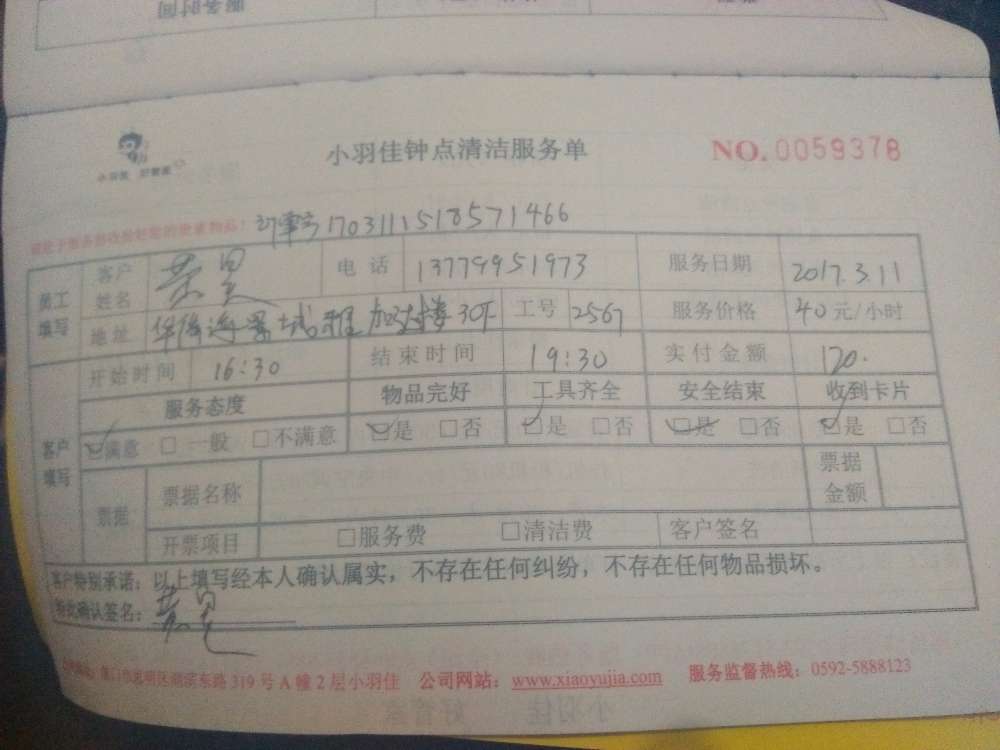 服务时间
小羽佳 好管家
小羽佳钟点清洁服务单
NO.0059378
请您于服务前收拾好您的贵重物品！ 订单号170311151857​1466
员工填写 客户姓名 电话 13779951973 服务日期 2017.3.11
地址 工号 2567 服务价格 40元/小时
客户填写 开始时间 16:30 结束时间 19:30 实付金额 120.
服务态度 物品完好 工具齐全 安全结束 收到卡片
☑满意 □一般 □不满意 ☑是 □否 ☑是 □否 ☑是 □否 ☑是 □否
票据 票据名称 票据金额
开票项目 □服务费 □清洁费 客户签名
客户特别承诺：以上填写经本人确认属实，不存在任何纠纷，不存在任何物品损坏。
特此确认签名：
公司地址：厦门市思明区湖滨东路319号A幢2层小羽佳 公司网站：www.xiaoyujia.com 服务监督热线：0592-5888123